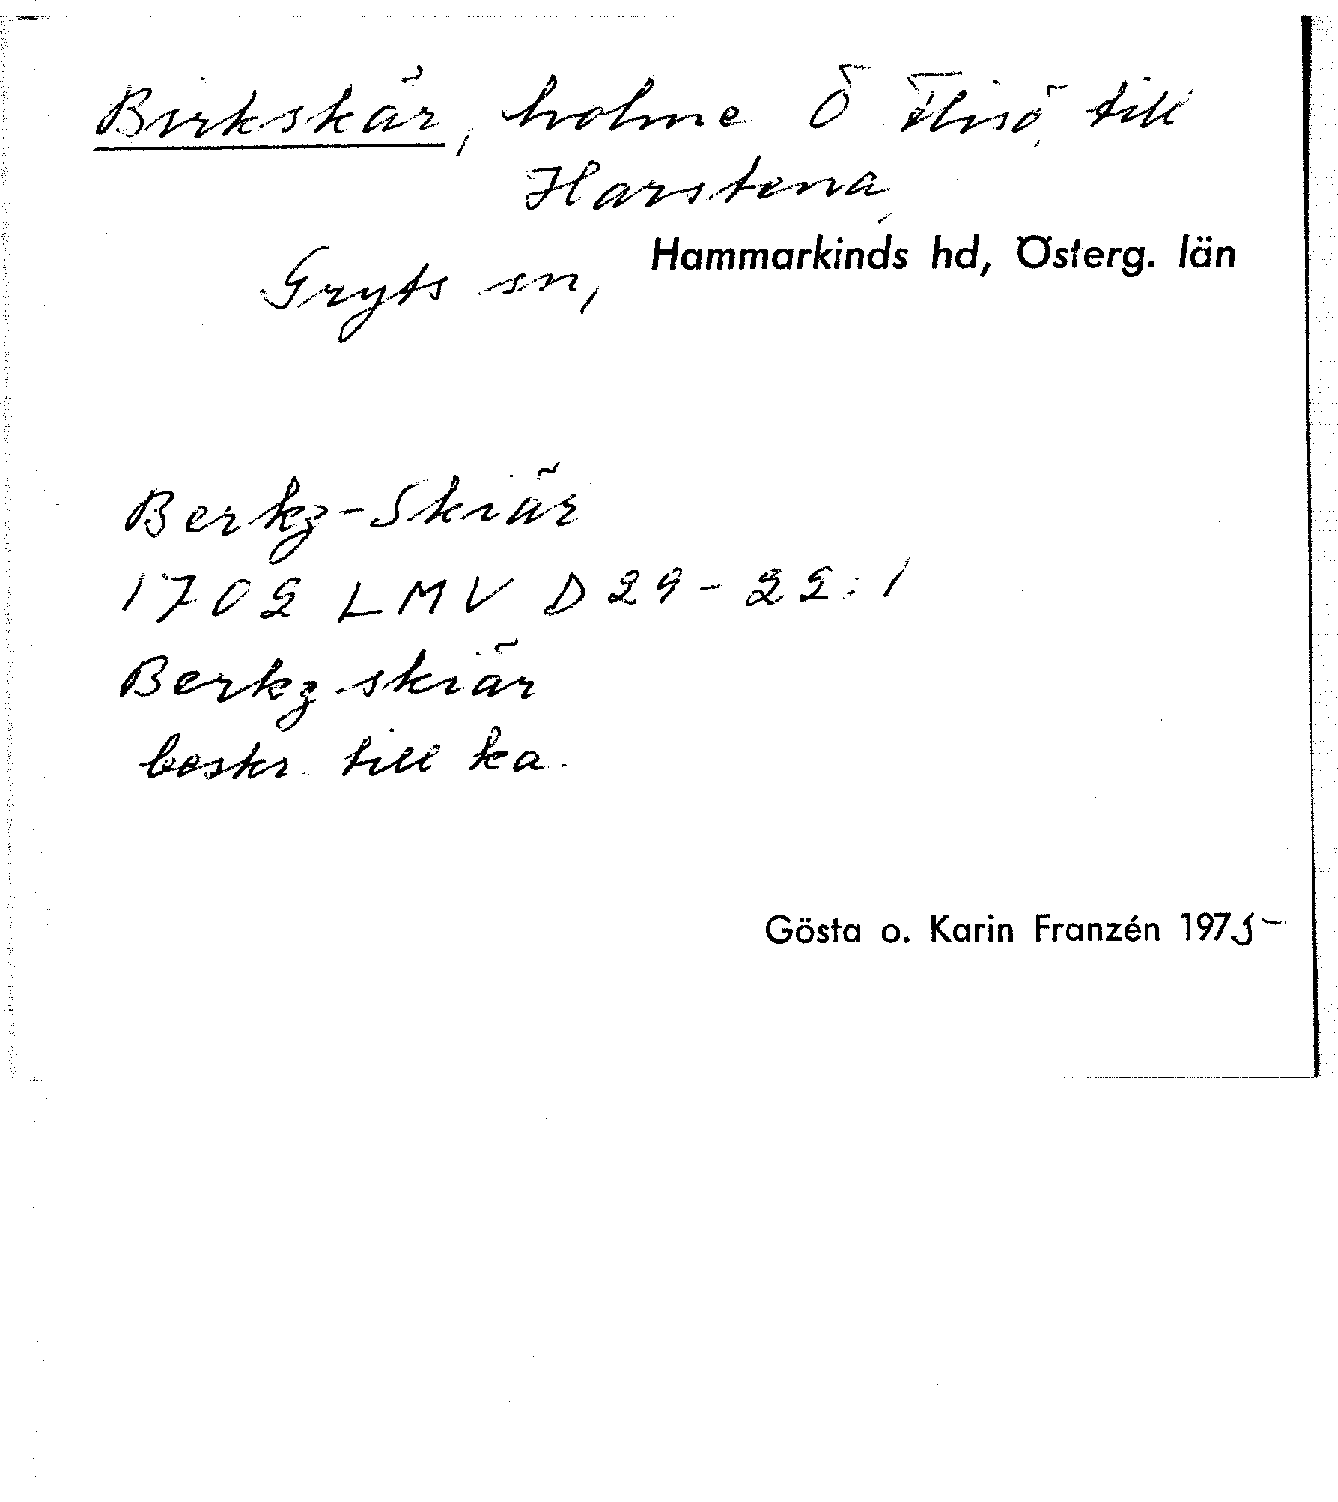 Birkskär, holme Ö Flisö, till
Harstena,
Gryts sn, Hammarkinds hd, Österg. län
Berkz-Skiär
1702 LMV D29-22:1
Berkz skiär
beskr. till ka.
Gösta o. Karin Franzén 1975